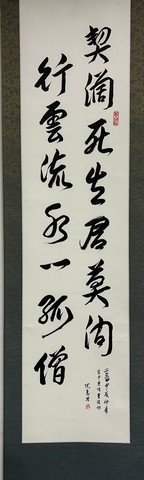 契阔死生君莫问
行雲流水一孤僧